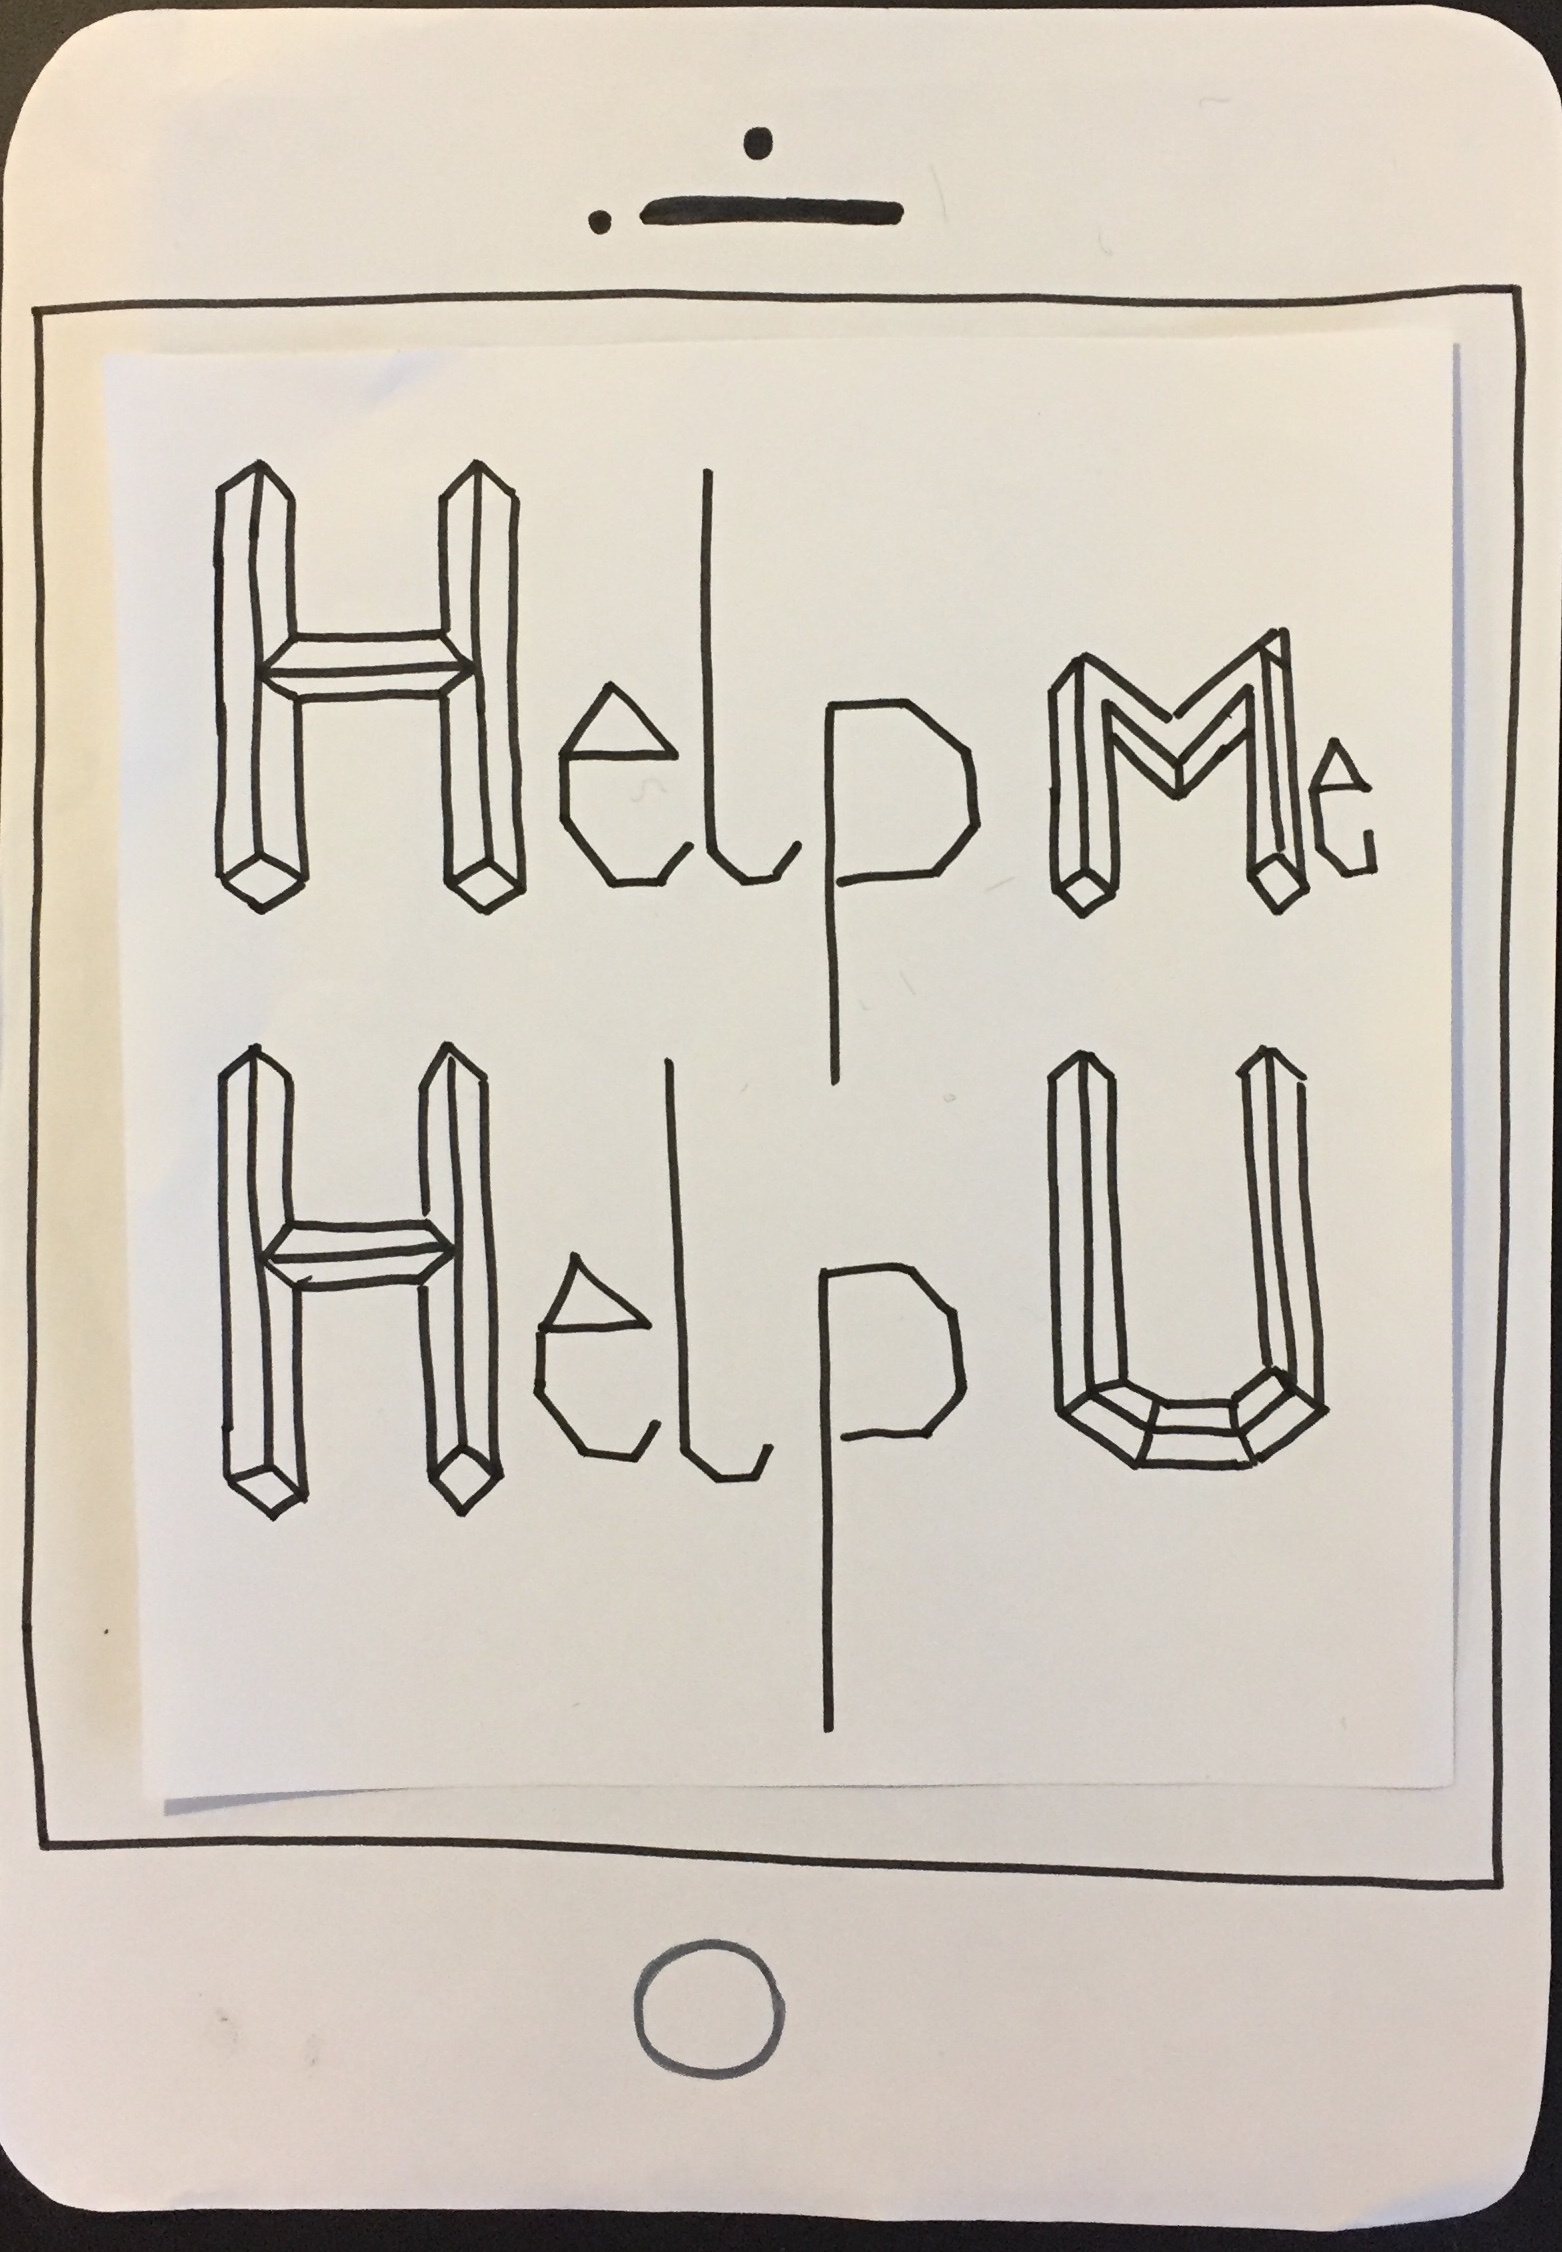 Help Me
Help U